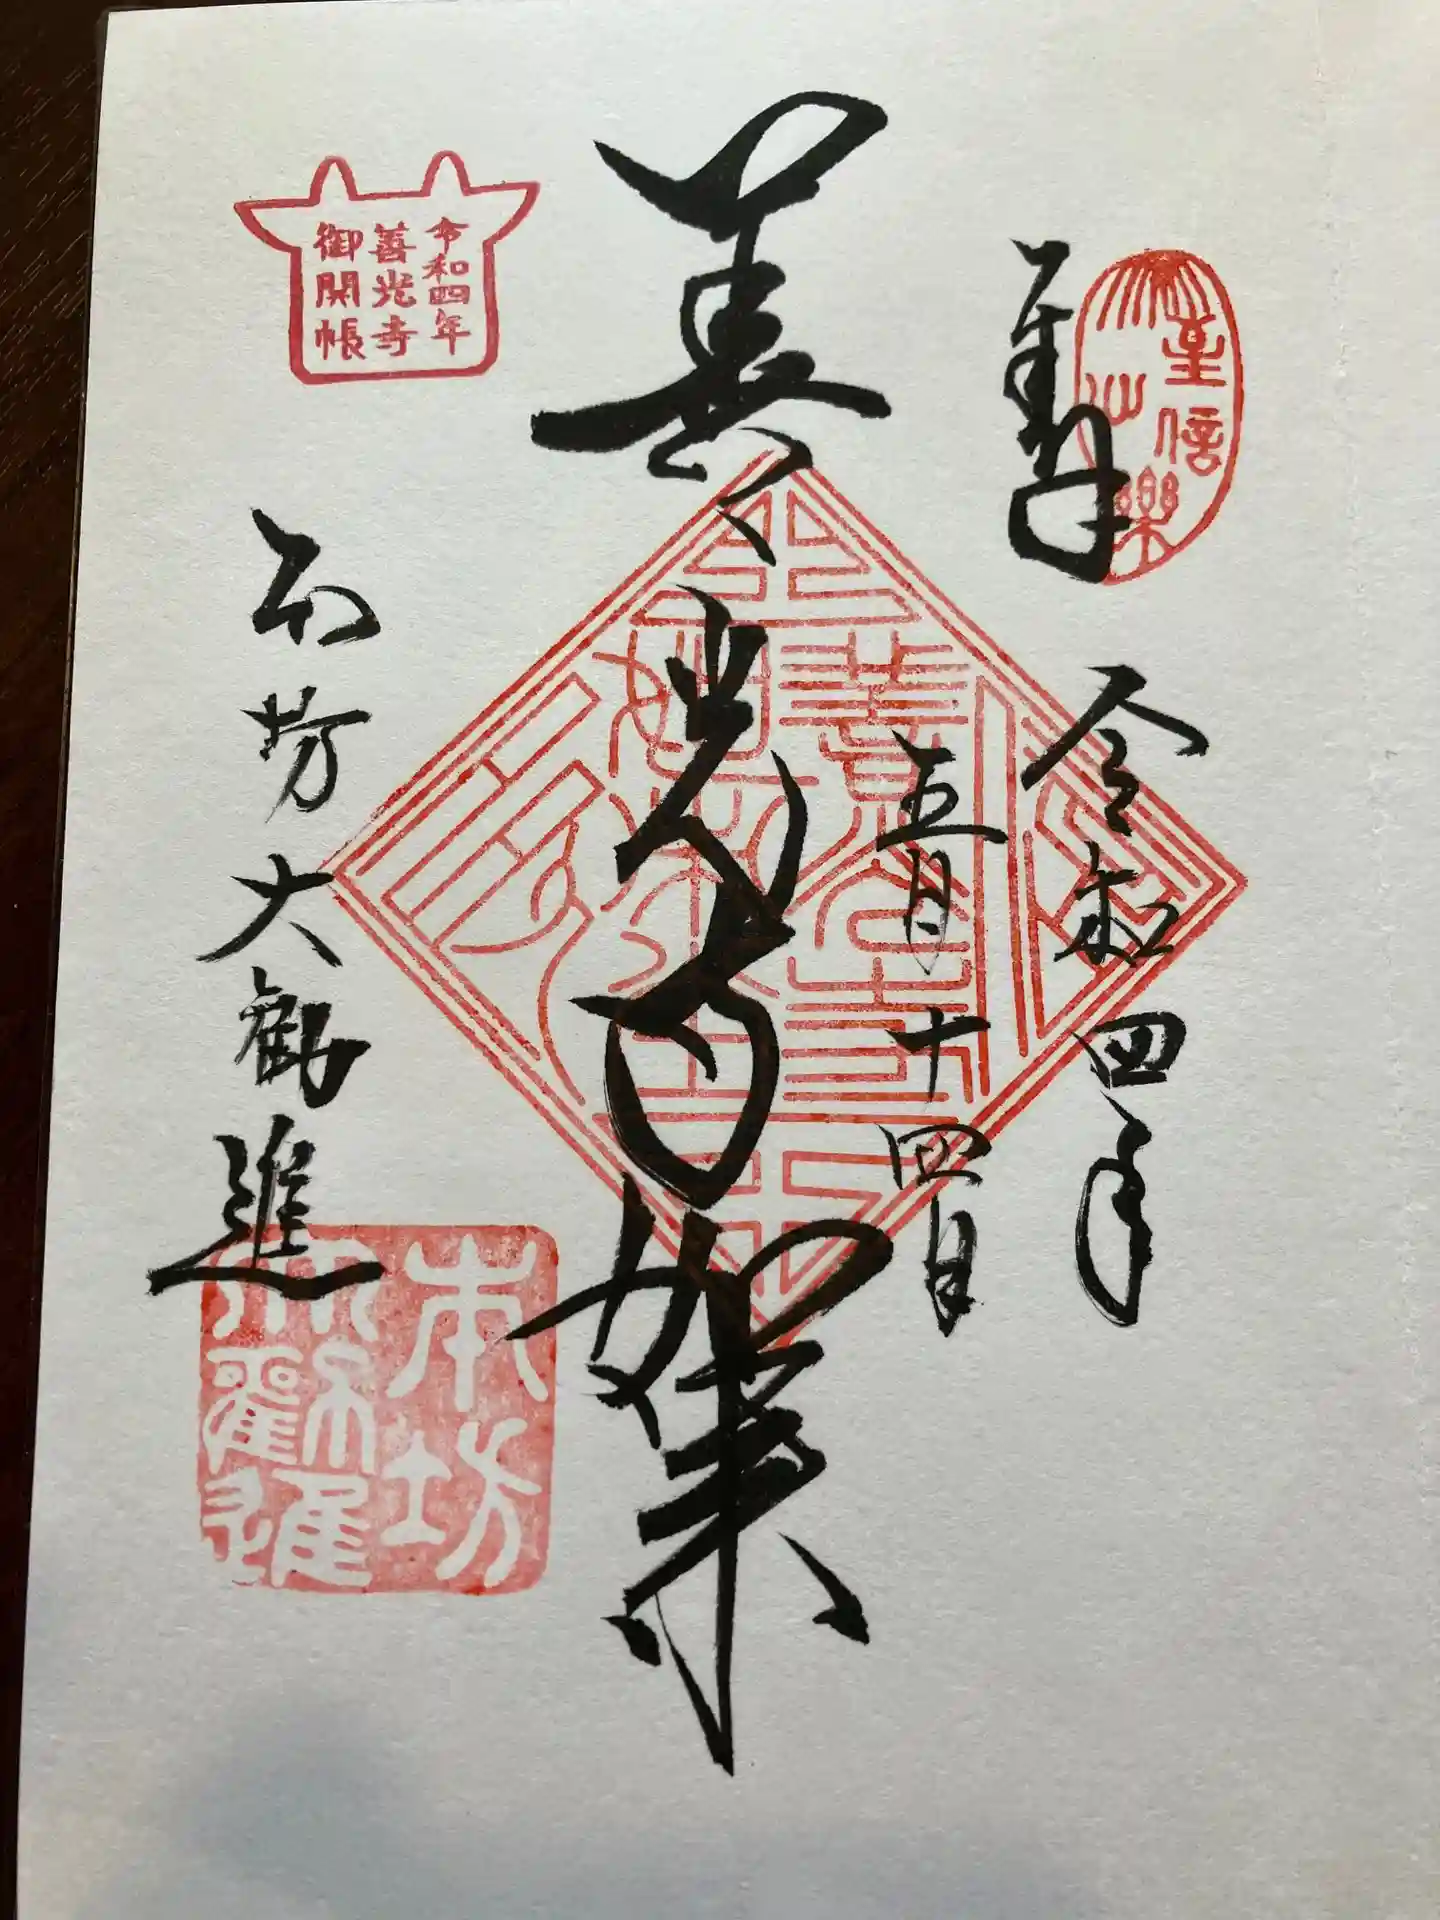 奉拝
至心
信樂
令和四年
五月十四日
善光寺如来
善光寺
如来
本坊大勧進
本坊
大勧進
令和四年
善光寺
御開帳